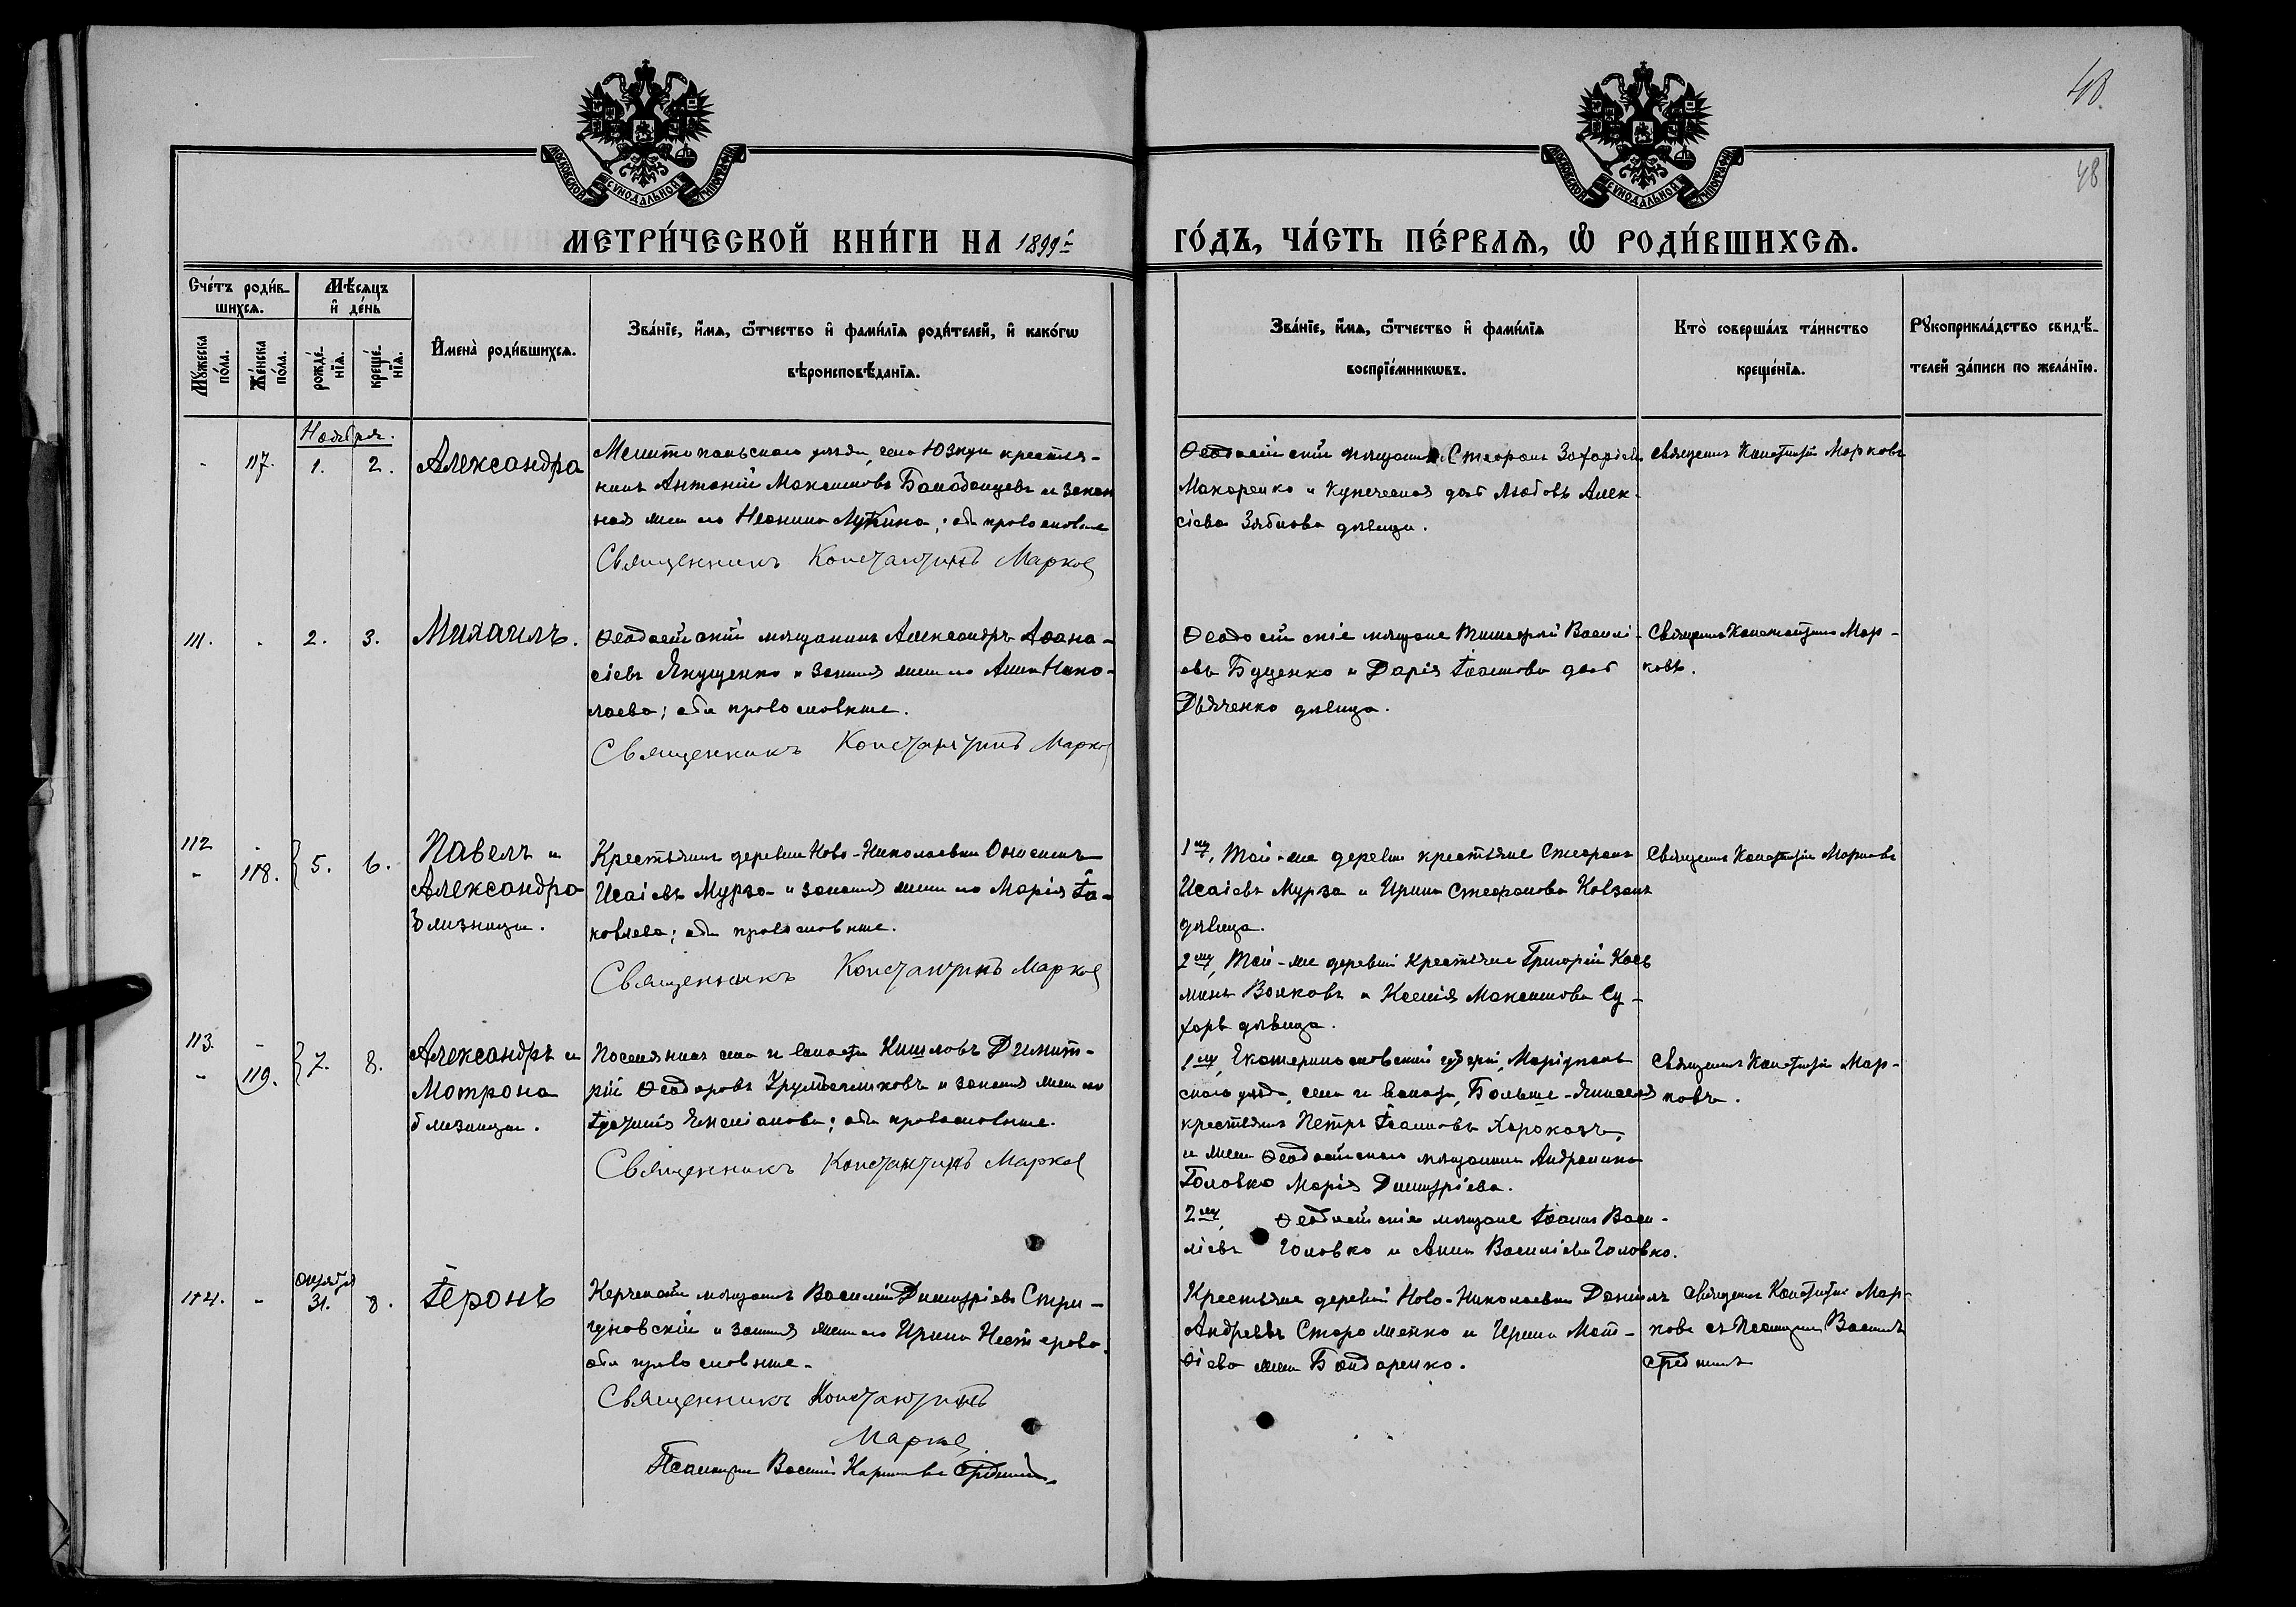 48
48
МОСКОВСКОЙ СѴНОДАЛЬНОЙ ТИПОГРАФІИ
МОСКОВСКОЙ СѴНОДАЛЬНОЙ ТИПОГРАФІИ
МЕТРИ́ЧЕСКОЙ КНИ́ГИ НА 1899й
ГО́ДЪ, ЧА́СТЬ ПЕ́РВАѦ, Ѽ РОДИ́ВШИХСѦ.
Сче́тъ роди́в-
шихсѧ.
Мꙋ́жеска по́ла.
Же́нска по́ла.
Мѣ́сѧцъ
и҆ де́нь
рожде́-нїѧ.
креще́-нїѧ.
И҆мена̀ роди́вшихсѧ.
Зва́нїе, и҆́мѧ, ѻ҆́тчество и҆ фами́лїѧ роди́телей, и҆ како́гѡ
вѣроисповѣ́данїѧ.
Зва́нїе, и҆́мѧ, ѻ҆́тчество и҆ фами́лїѧ
воспрїе́мникѡвъ.
Кто̀ соверша́лъ та́инство
креще́нїѧ.
Рꙋкоприкла́дство свидѣ́-
телей за́писи по жела́нїю.
Ноября.
- 117. 1. 2. Александра
Мелитопольскаго уѣзда, села Юзкуи крестья-
нинъ Антоній Максимовъ и закон
ная жена его Неонила ; оба православные
Священникъ Константинъ Марков
Ѳеодосійскій мѣщанинъ Стефанъ Захаріевъ
Макаренко и купеческая дочь Любовь Алек-
сіева Зябнова дѣвица.
Священникъ Константинъ Марковъ
111. - 2. 3. Михаилъ.
Ѳеодосійскій мѣщанинъ Александръ Аѳана-
сіевъ Янущенко и законная жена его Анна Нико-
лаева; оба православные.
Священникъ Константинъ Марков
Ѳеодосійскіе мѣщане Тимофей Василі-
евъ Буценко и Дарія Іоаннова дочь
Дьяченко дѣвица.
Священникъ Константинъ Мар-
ковъ.
112 - 5. 6. Павелъ и
- 118. Александра
близнецы.
Крестьянинъ деревни Ново-Николаевки Онисимъ
Исаіевъ Мурза и законная жена его Марія Іа-
ковлева; оба православные.
Священникъ Константинъ Марков
1му, Той-же деревни крестьяне Стефанъ
Исаіевъ Мурза и Ирина Стефанова Ковзанъ
дѣвица.
2му, Той-же деревни крестьяне Григорій Кось
минъ Волковъ и Ксенія Максимова Су-
харь дѣвица.
Священникъ Константинъ Марковъ
113. - 7. 8. Александръ и
- 119. Матрона
близнецы.
Поселянинъ села и волости Димит-
рій Ѳеодоровъ и законная жена его
; оба православные.
Священникъ Константинъ Марков
1му, Екатеринославской губерніи, Маріуполь
скаго уѣзда, села и волости Больше-Янисоля
крестьянинъ Петръ Іоанновъ
и жена Ѳеодосійскаго мѣщанина Андроника
Головко Марія Димитріева.
2му, Ѳеодосійскіе мѣщане Іоаннъ Васи-
ліевъ Головко и Анна Василіева Головко.
Священникъ Константинъ Мар-
ковъ.
Октября
114. - 31. 8. Іеронъ
Керченскій мѣщанинъ Василій Димитріевъ Стри-
гуновскій и законная жена его Ирина Нестерова,
оба православные.
Священникъ Константинъ
Марков
Псаломщикъ Василій
Крестьяне деревни Ново-Николаевки Даніилъ
Андреевъ Староменко и Ирина Мат-
ѳіева жена Бондаренко.
Священникъ Константинъ Мар-
ковъ съ псаломщикомъ Василь